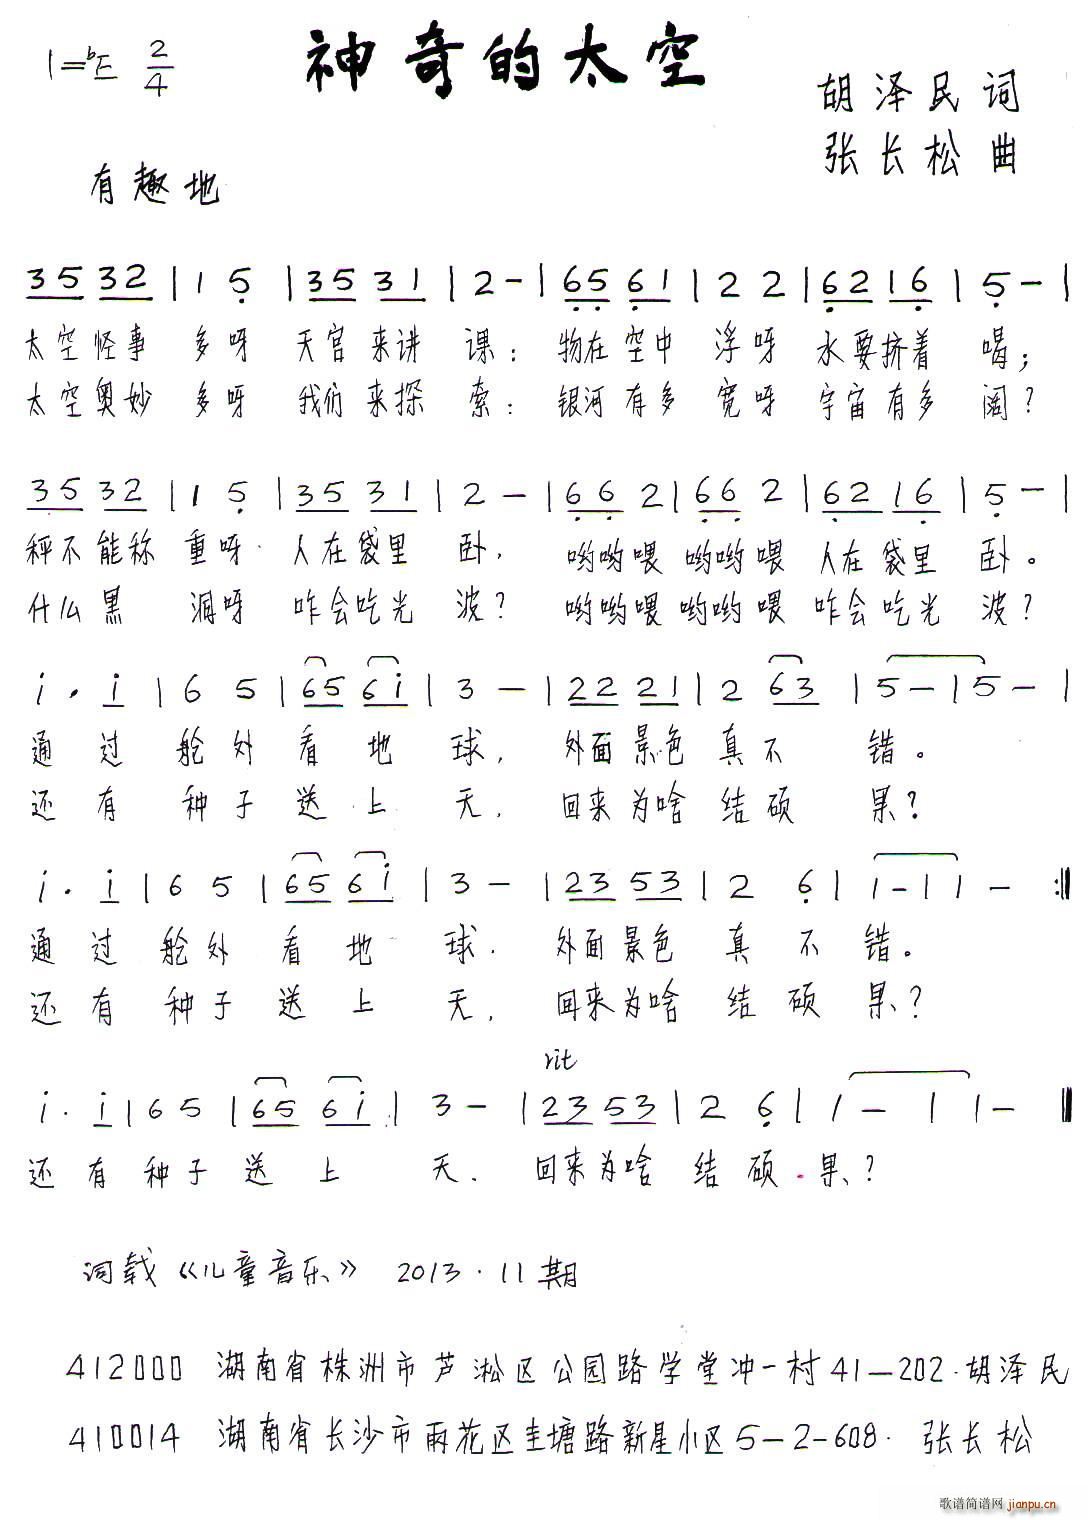 1=♭E 2/4
神奇的太空
胡泽民词
张长松曲
有趣地
3532 | 1 5 | 35 31 | 2 - | 65 61 | 2 2 | 62 16 | 5 - |
太空怪事 多呀 天宫来讲 课：物在空中 浮呀 水要挤着 喝；
太空奥妙 多呀 我们来探 索：银河有多 宽呀 宇宙有多 阔？
35 32 | 1 5 | 35 31 | 2 - | 66 2 | 66 2 | 62 16 | 5 - |
秤不能称 重呀. 人在袋里 卧, 哟哟喂 哟哟喂 人在袋里 卧。
什么黑 洞呀 咋会吃光 波？ 哟哟喂 哟哟喂 咋会吃光 波？
i . i | 6 5 | 65 6i | 3 - | 22 21 | 2 63 | 5 - | 5 - |
通过 舱外 看地 球, 外面景色 真不 错。
还有 种子 送上 天, 回来为啥 结硕 果？
i . i | 6 5 | 65 6i | 3 - | 23 53 | 2 6 | 1 - | 1 - :‖
通过 舱外 看地 球. 外面景色 真不错。
还有 种子 送上 天, 回来为啥 结硕果？
rit
i . i | 6 5 | 65 6i | 3 - | 23 53 | 2 6 | 1 - | 1 - ‖
还有 种子 送上 天. 回来为啥 结硕果？
词载《儿童音乐》 2013.11期
412000 湖南省株洲市芦淞区公园路学堂冲一村41—202.胡泽民
410014 湖南省长沙市雨花区圭塘路新星小区5-2-608. 张长松
歌谱简谱网 jianpu.cn